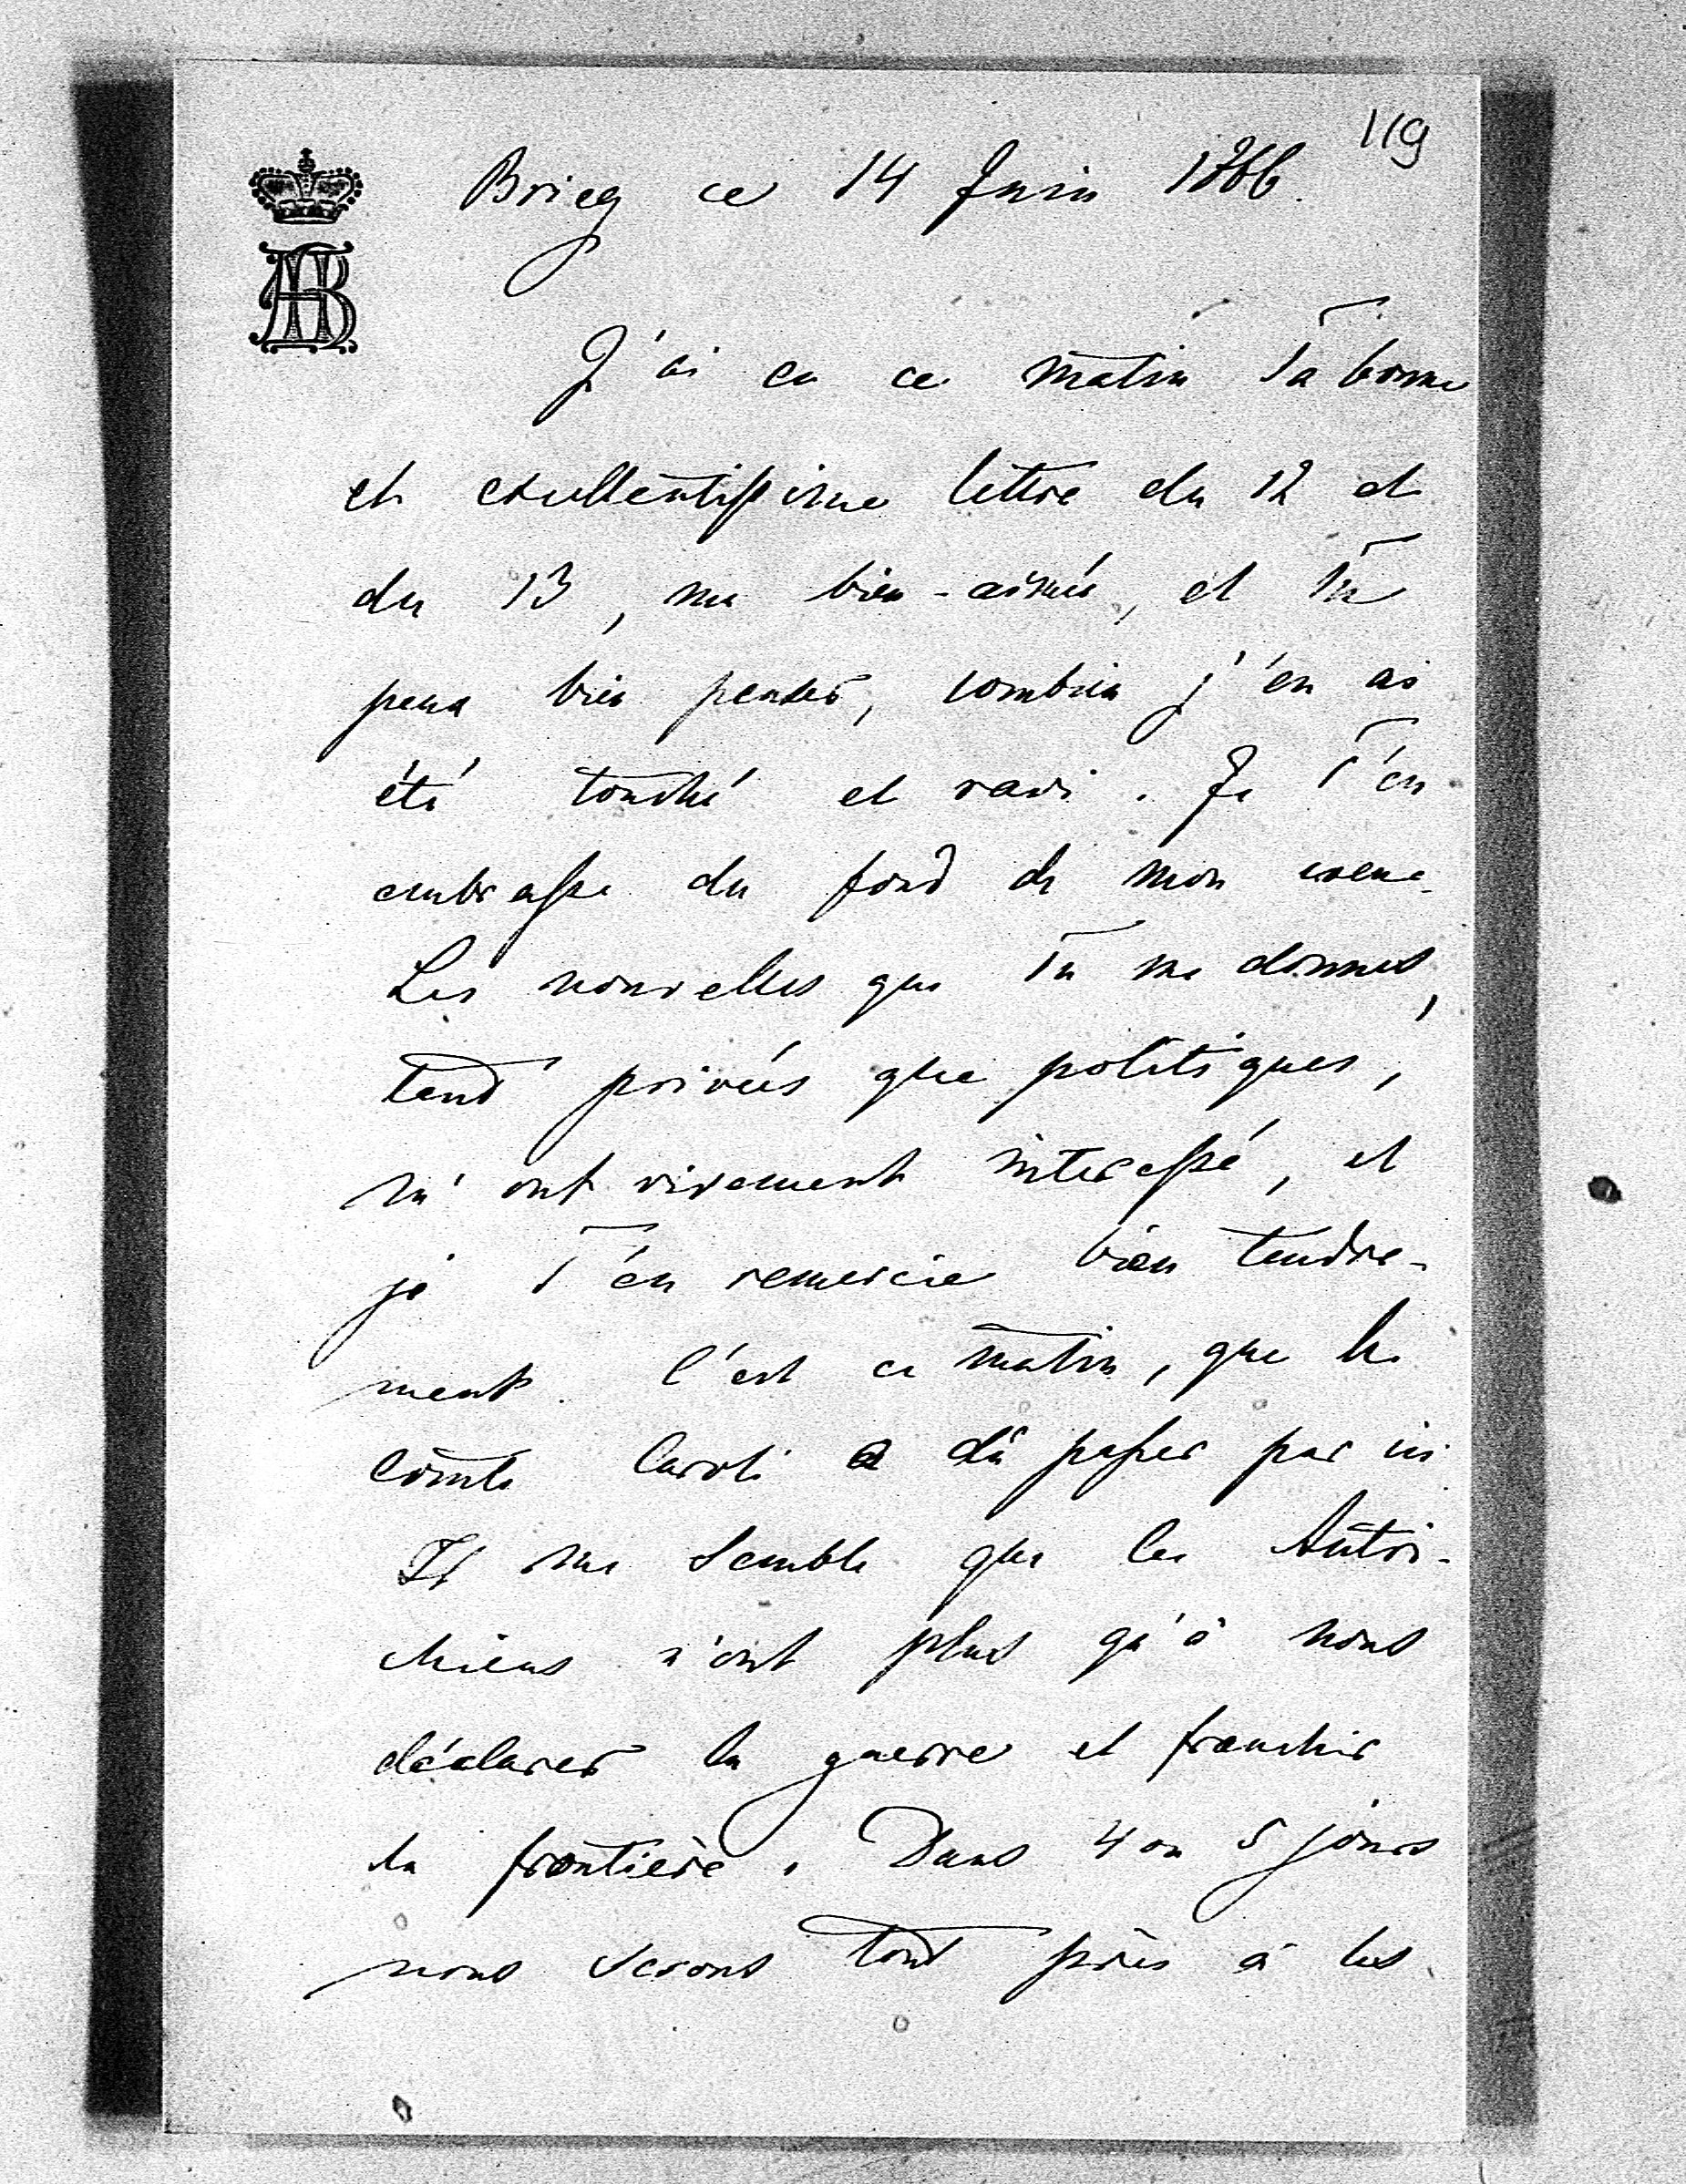 119
Brieg ce 14 Juin 1866.
J'ai eu ce matin Ta bonne
et excellentissime lettre du 12 et
du 13, ma bien-aimée, et Tu
peux bien penser, combien j'en ai
été touché et ravi. Je T'en
embrasse du fond de mon coeur.
Les nouvelles que Tu me donnes,
tant privées que politiques,
m'ont vivement interessé, et
je T'en remercie bien tendre-
ment. C'est ce matin, que le
Comte Caroli a dû passer par ici.
Il me semble que les Autri-
chiens n'ont plus qu'à nous
déclarer la guerre et franchir
la frontière. Dans 4 ou 5 jours
nous serons tout près à les